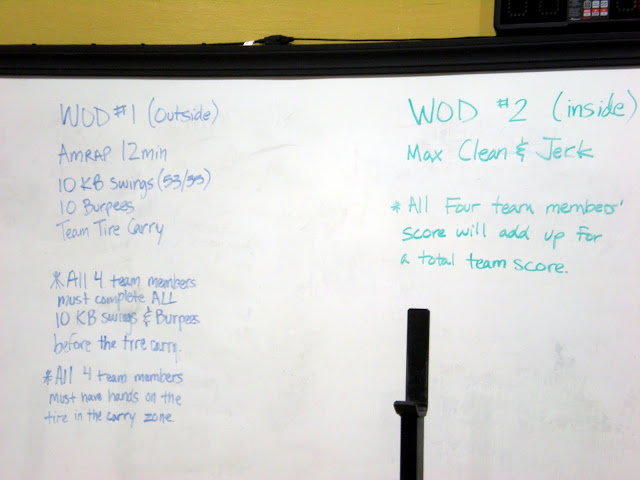 WOD #1 (Outside)
AMRAP 12min
10 KB Swings (53/35)
10 Burpees
Team Tire Carry
* All 4 team members
must complete ALL
10 KB swings & Burpees
before the tire carry.
* All 4 team members
must have hands on the
tire in the carry zone
WOD #2 (inside)
Max Clean & Jerk
* All Four team members'
score will add up for
a total team score.